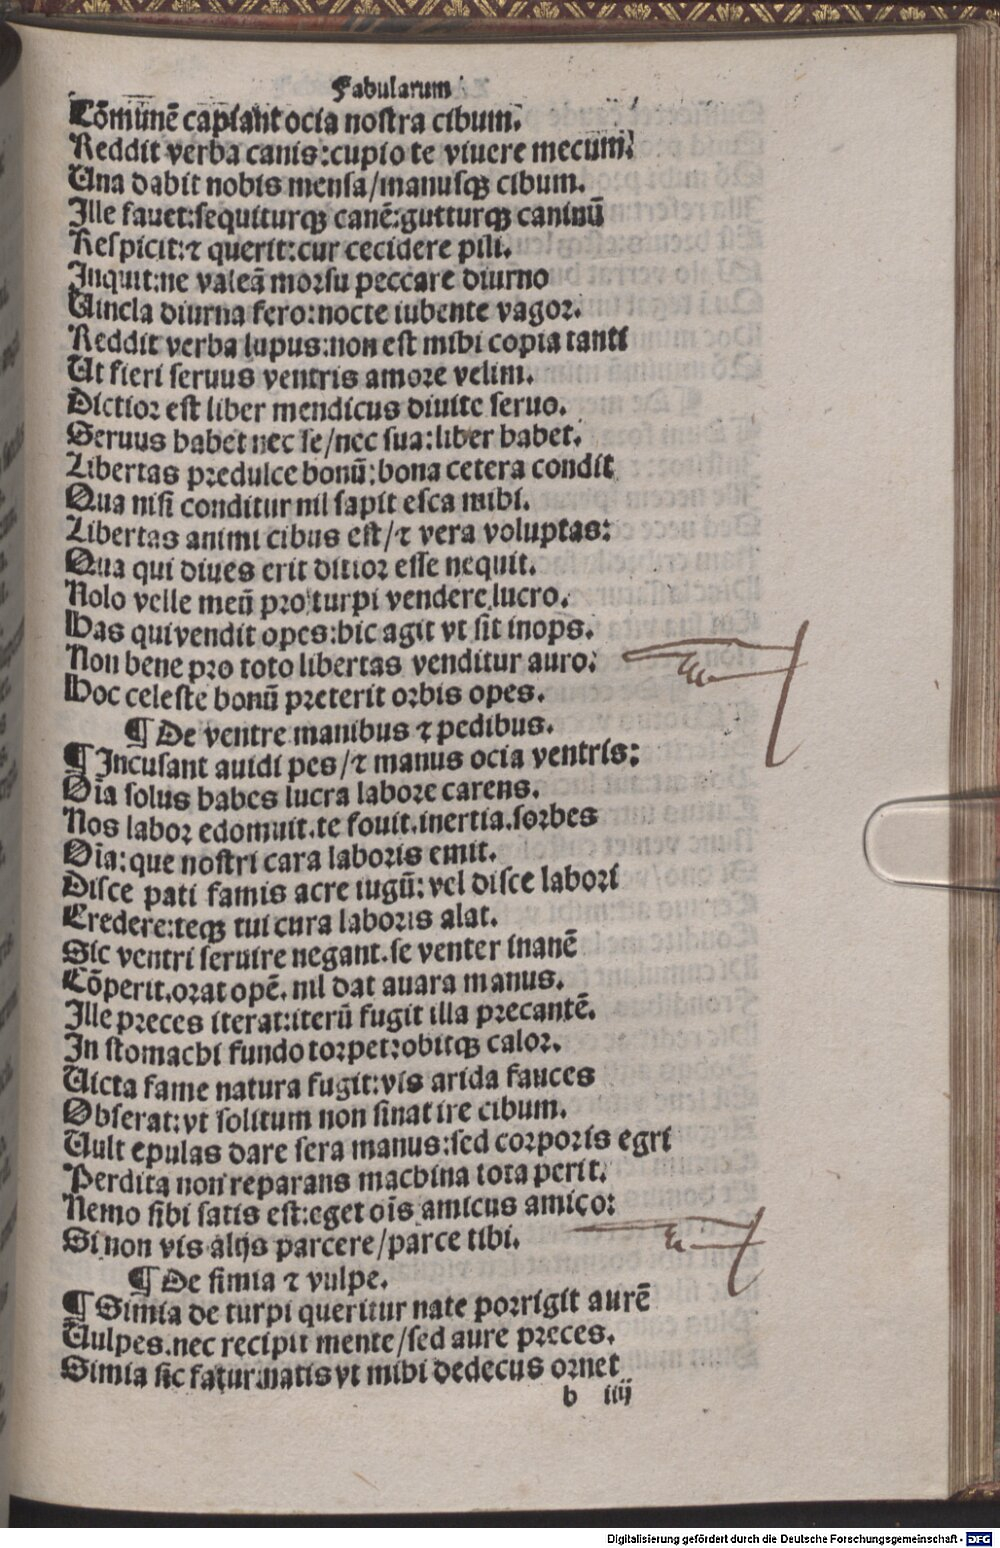 Fabularum
Cōmunē capiant ocia nostra cibum.
Reddit verba canis:cupio te viuere mecum.
Una dabit nobis mensa/manusqꝫ cibum.
Ille fauet:sequiturqꝫ canē:gutturqꝫ caninū
Respicit:⁊ querit:cur cecidere pili.
Inquit:ne valeā morsu peccare diurno
Uincla diurna fero:nocte iubente vagor.
Reddit verba lupus:non est mihi copia tanti
Ut fieri seruus ventris amore velim.
Dictior est liber mendicus diuite seruo.
Seruus habet nec se/nec sua:liber habet.
Libertas predulce bonū:bona cetera condit
Qua nisi conditur nil sapit esca mihi.
Libertas animi cibus est/⁊ vera voluptas:
Qua qui diues erit ditior esse nequit.
Nolo velle meū pro turpi vendere lucro.
Has qui vendit opes:hic agit vt sit inops.
Non bene pro toto libertas venditur auro:
Hoc celeste bonū preterit orbis opes.
¶ De ventre manibus ⁊ pedibus.
¶ Incusant auidi pes/⁊ manus ocia ventris:
Oīa solus habes lucra labore carens.
Nos labor edomuit.te fouit.inertia.sorbes
Oīa:que nostri cara laboris emit.
Disce pati famis acre iugū:vel disce labori
Credere:teqꝫ tui cura laboris alat.
Sic ventri seruire negant.se venter inanē
Cōperit.orat opē.nil dat auara manus.
Ille preces iterat:iterū fugit illa precantē.
In stomachi fundo torpet:obitqꝫ calor.
Uicta fame natura fugit:vis arida fauces
Obserat:vt solitum non sinat ire cibum.
Uult epulas dare sera manus:sed corporis egri
Perdita non reparans machina tota perit.
Nemo sibi satis est:eget oīs amicus amico:
Si non vis alijs parcere/parce tibi.
¶ De simia ⁊ vulpe.
¶ Simia de turpi queritur nate porrigit aurē
Uulpes.nec recipit mente/sed aure preces.
Simia sic fatur:natis vt mihi dedecus ornet
b iiij
Digitalisierung gefördert durch die Deutsche Forschungsgemeinschaft - DFG